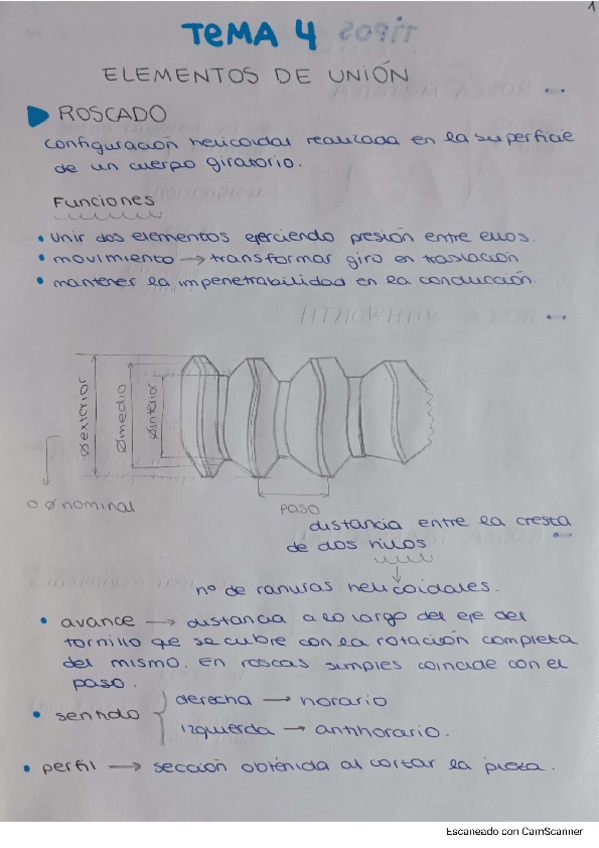 1
TEMA 4
ELEMENTOS DE UNIÓN
ROSCADO
configuración helicoidal realizada en la superficie
de un cuerpo giratorio.
Funciones
• unir dos elementos ejerciendo presión entre ellos.
• movimiento → transformar giro en traslación
• mantener la impenetrabilidad en la conducción.
Ø exterior
Ø medio
Ø interior
o Ø nominal
PASO
distancia entre la cresta
de dos hilos
nº de ranuras helicoidales.
• avance → distancia a lo largo del eje del
tornillo que se cubre con la rotación completa
del mismo. En roscas simples coincide con el
paso.
• sentido { derecha → horario
izquierda → antihorario.
• perfil → sección obtenida al cortar la pieza.
Escaneado con CamScanner